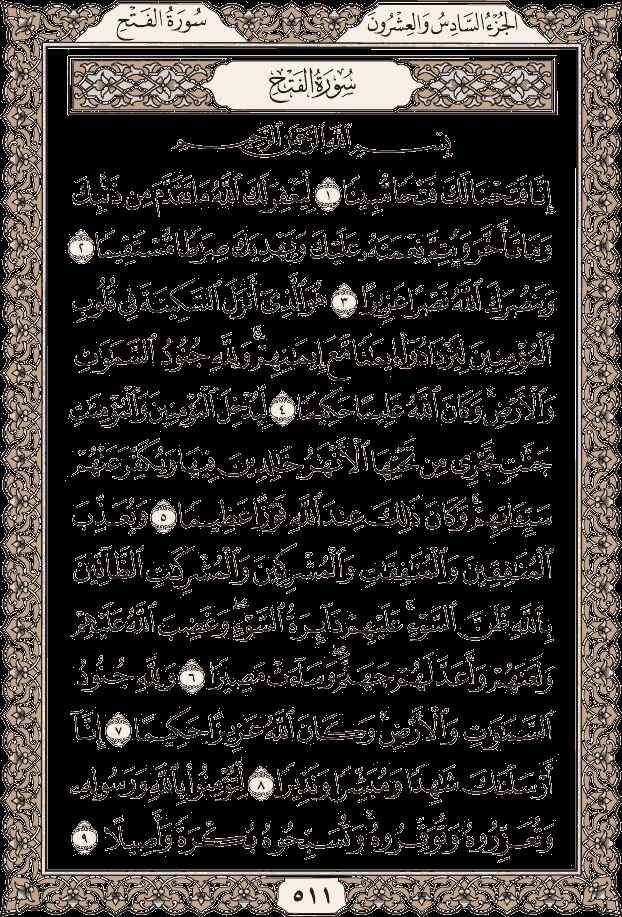 الجزء السادس والعشرون
سورة الفتح
سورة الفتح
بسم الله الرحمن الرحيم
إِنَّا فَتَحْنَا لَكَ فَتْحًا مُّبِينًا ١ لِّيَغْفِرَ لَكَ ٱللَّهُ مَا تَقَدَّمَ مِن ذَنۢبِكَ
وَمَا تَأَخَّرَ وَيُتِمَّ نِعْمَتَهُۥ عَلَيْكَ وَيَهْدِيَكَ صِرَٰطًا مُّسْتَقِيمًا ٢
وَيَنصُرَكَ ٱللَّهُ نَصْرًا عَزِيزًا ٣ هُوَ ٱلَّذِىٓ أَنزَلَ ٱلسَّكِينَةَ فِى قُلُوبِ
ٱلْمُؤْمِنِينَ لِيَزْدَادُوٓا۟ إِيمَٰنًا مَّعَ إِيمَٰنِهِمْ ۗ وَلِلَّهِ جُنُودُ ٱلسَّمَٰوَٰتِ
وَٱلْأَرْضِ ۚ وَكَانَ ٱللَّهُ عَلِيمًا حَكِيمًا ٤ لِّيُدْخِلَ ٱلْمُؤْمِنِينَ وَٱلْمُؤْمِنَٰتِ
جَنَّٰتٍ تَجْرِى مِن تَحْتِهَا ٱلْأَنْهَٰرُ خَٰلِدِينَ فِيهَا وَيُكَفِّرَ عَنْهُمْ
سَيِّـَٔاتِهِمْ ۚ وَكَانَ ذَٰلِكَ عِندَ ٱللَّهِ فَوْزًا عَظِيمًا ٥ وَيُعَذِّبَ
ٱلْمُنَٰفِقِينَ وَٱلْمُنَٰفِقَٰتِ وَٱلْمُشْرِكِينَ وَٱلْمُشْرِكَٰتِ ٱلظَّآنِّينَ
بِٱللَّهِ ظَنَّ ٱلسَّوْءِ ۚ عَلَيْهِمْ دَآئِرَةُ ٱلسَّوْءِ ۖ وَغَضِبَ ٱللَّهُ عَلَيْهِمْ
وَلَعَنَهُمْ وَأَعَدَّ لَهُمْ جَهَنَّمَ ۖ وَسَآءَتْ مَصِيرًا ٦ وَلِلَّهِ جُنُودُ
ٱلسَّمَٰوَٰتِ وَٱلْأَرْضِ ۚ وَكَانَ ٱللَّهُ عَزِيزًا حَكِيمًا ٧ إِنَّآ
أَرْسَلْنَٰكَ شَٰهِدًا وَمُبَشِّرًا وَنَذِيرًا ٨ لِّتُؤْمِنُوا۟ بِٱللَّهِ وَرَسُولِهِۦ
وَتُعَزِّرُوهُ وَتُوَقِّرُوهُ ۚ وَتُسَبِّحُوهُ بُكْرَةً وَأَصِيلًا ٩
٥١١